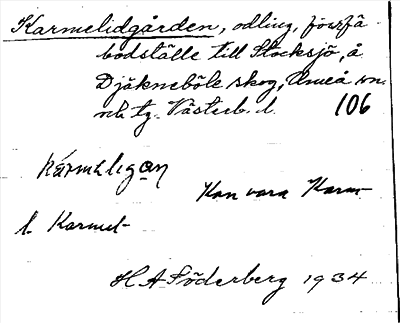 Karmelidgården, odling, förr fä
bodställe till Stocksjö, å
Djäkneböle skog, Umeå sn.
och tg. Västerb. l. 106
kármeligan
Kan vara Karm-
l. Karmel-
H A Söderberg 1934